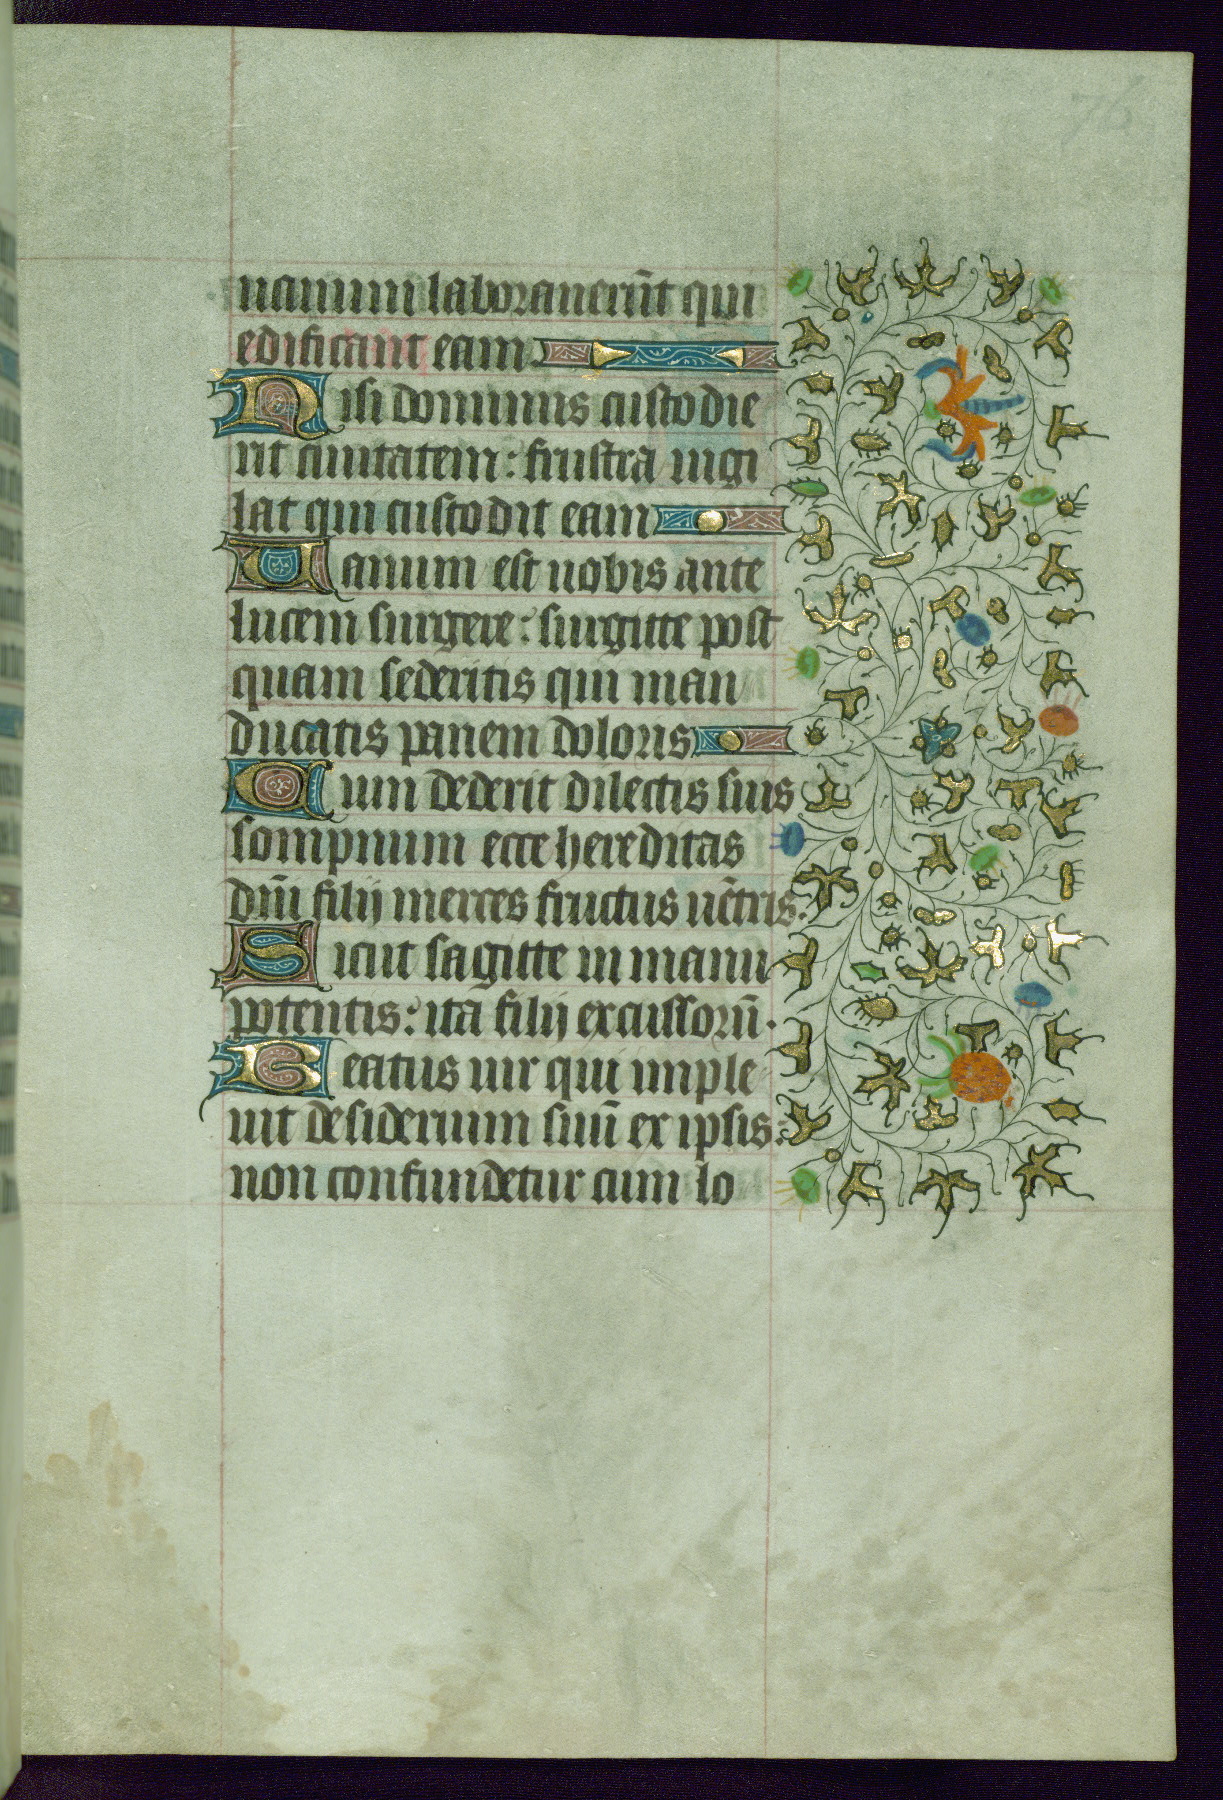 76
uanum laborauerūt qui
edificant eam
Nisi dominus custodie
rit ciuitatem : frustra uigi
lat qui custodit eam
Uanum est uobis ante
lucem surgere : surgitte post
quam sederitis qui man
ducatis panem doloris
Cum dederit dilectis suis
sompnum ecce hereditas
dñi filij merces fructus uētris.
Sicut sagitte in manu
potentis : ita filij excussorū.
Beatus uir qui imple
uit desiderium suū ex ipsis :
non confundetur cum lo